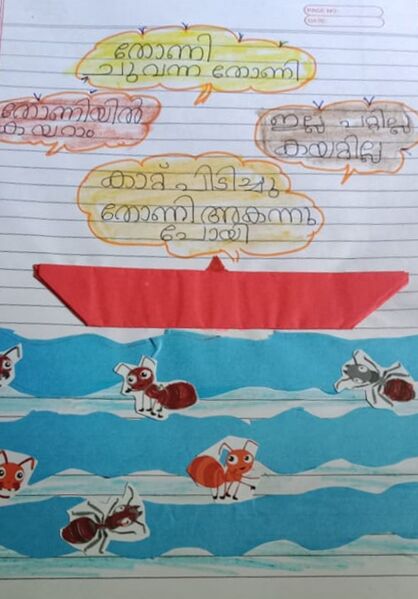 PAGE NO.
DATE:
തോണി
ചുവന്ന തോണി
തോണിയിൽ
കയറാം
ഇല്ല പറ്റില്ല
കയറ്റില്ല
കാറ്റ് പിടിച്ചു
തോണി അകന്നു
പോയി